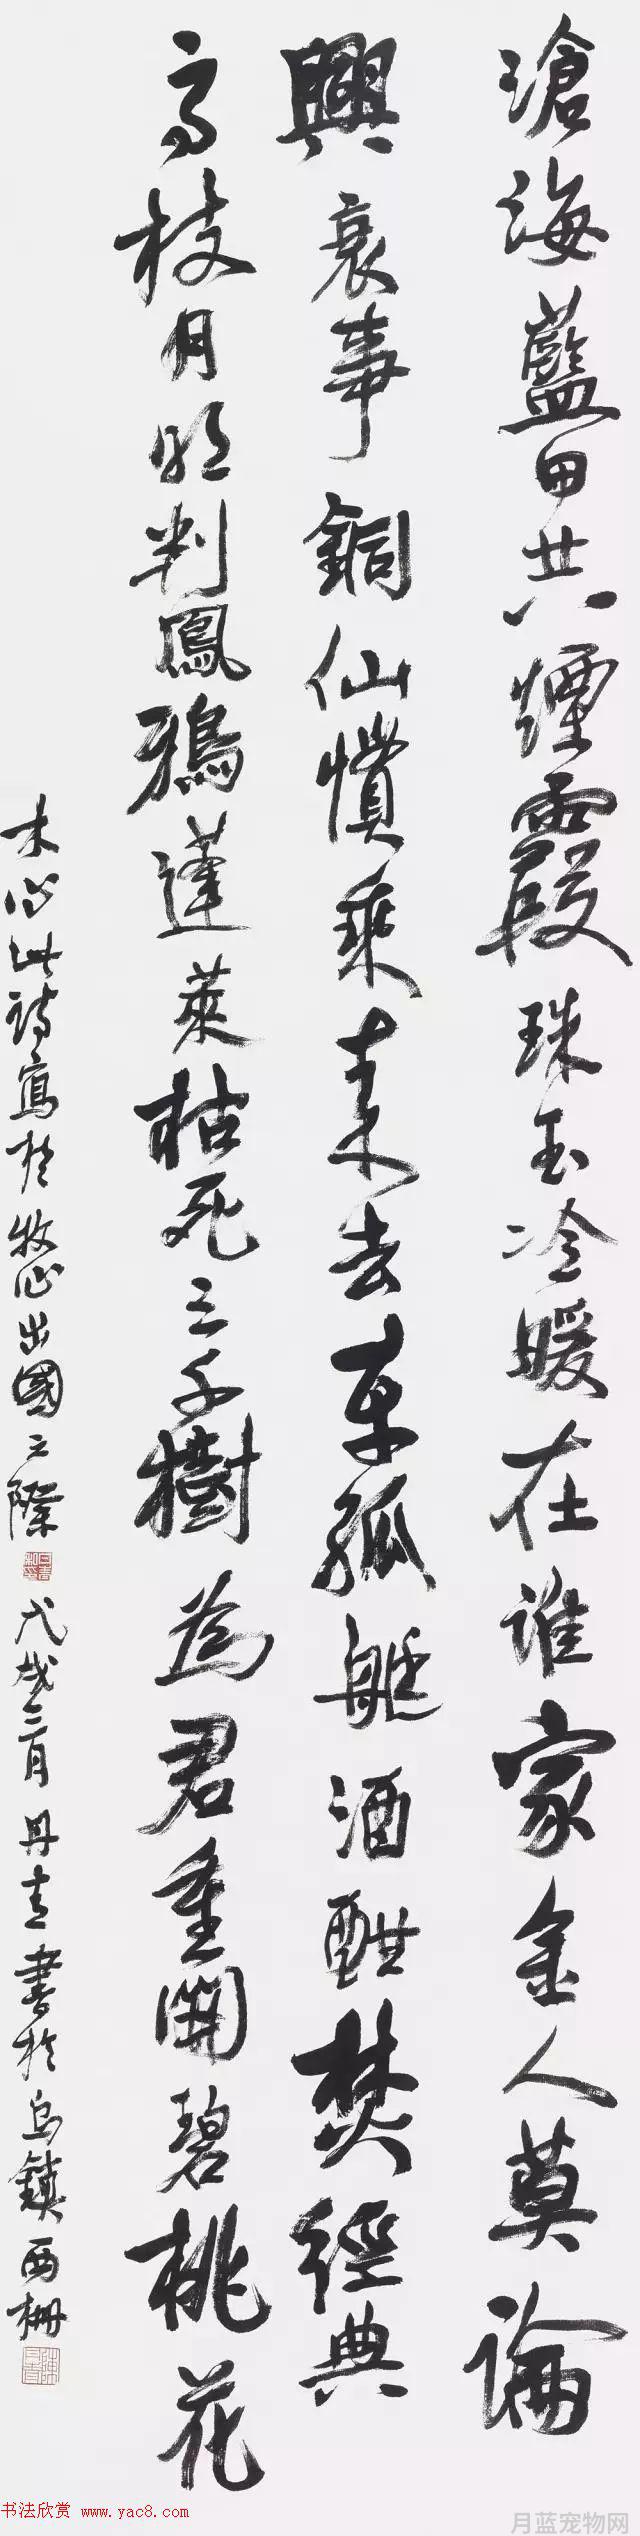 滄海藍田共煙霞珠玉冷暖在誰家金人莫論
興衰事銅仙慣乘來去車孤艇酒酣焚經典
高枝月明判鳳鴉蓬萊枯死三千樹為君重開碧桃花
木心此詩寫於牧心出國之際 戊戌三月丹青書於烏鎮西柵
书法欣赏 www.yac8.com
月蓝宠物网